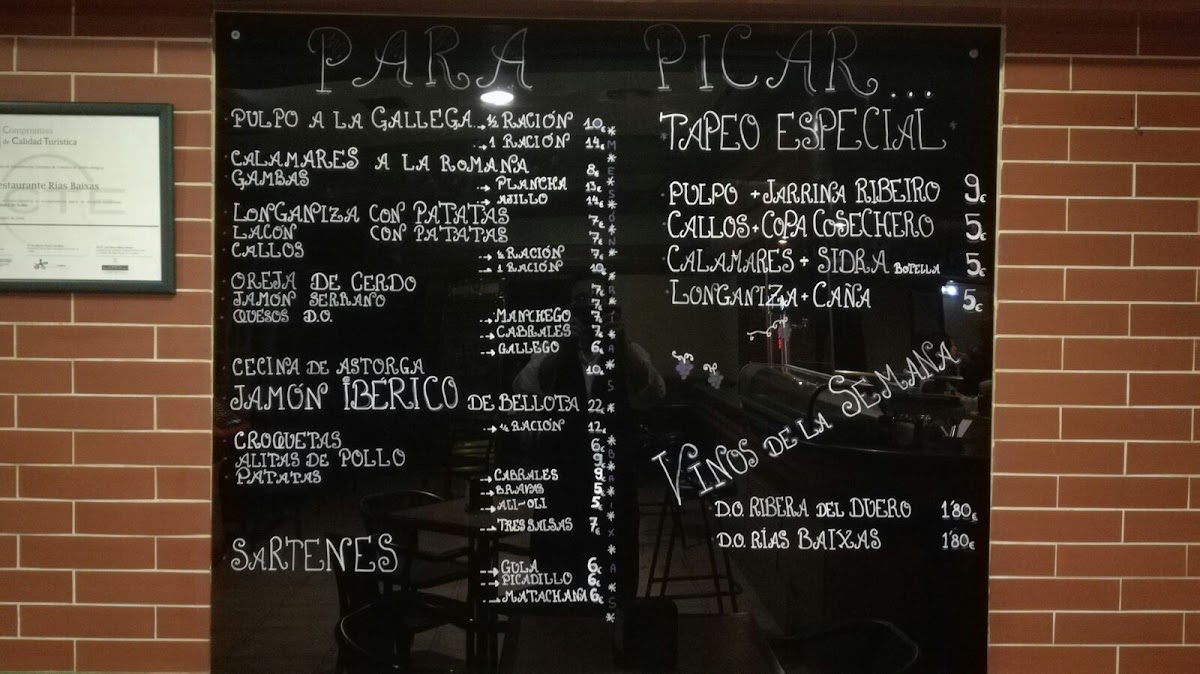 PARA PICAR...
PULPO A LA GALLEGA → ½ RACIÓN 10€
→ 1 RACIÓN 14€
CALAMARES A LA ROMANA 8€
GAMBAS → PLANCHA 13€
→ AJILLO 14€
LONGANIZA CON PATATAS 7€
LACÓN CON PATATAS 7€
CALLOS → ½ RACIÓN 7€
→ 1 RACIÓN 10€
OREJA DE CERDO 7€
JAMÓN SERRANO 7€
QUESOS D.O. → MANCHEGO 7€
→ CABRALES 7€
→ GALLEGO 6€
CECINA DE ASTORGA 10€
JAMÓN IBÉRICO DE BELLOTA 22€
→ ½ RACIÓN 12€
CROQUETAS 6€
ALITAS DE POLLO 9€
PATATAS → CABRALES 9€
→ BRAVAS 5€
→ ALI-OLI 5€
→ TRES SALSAS 7€
SARTENES → GULA 6€
→ PICADILLO 6€
→ MATACHANA 6€
*MESÓN*RÍAS*BAIXAS*
TAPEO ESPECIAL
PULPO + JARRINA RIBEIRO 9€
CALLOS + COPA COSECHERO 5€
CALAMARES + SIDRA BOTELLA 5€
LONGANIZA + CAÑA 5€
VINOS DE LA SEMANA
D.O. RIBERA DEL DUERO 1'80€
D.O. RÍAS BAIXAS 1'80€
Compromiso
de Calidad Turística
Restaurante Rías Baixas